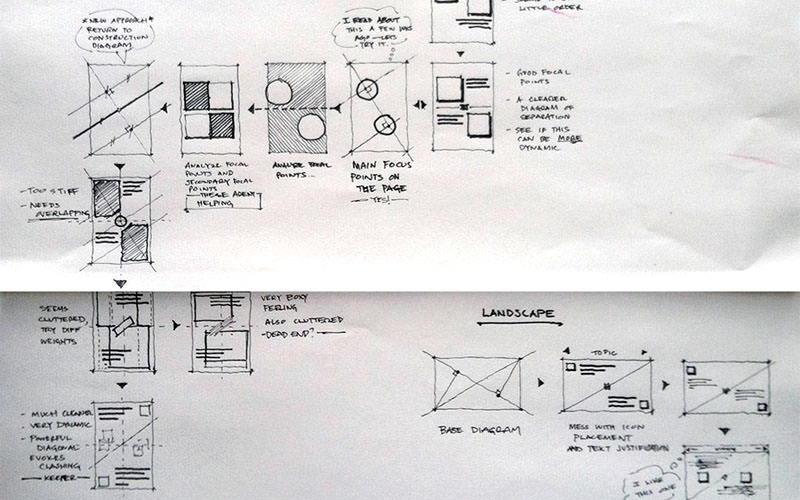 *NEW APPROACH*
RETURN TO
CONSTRUCTION
DIAGRAM.
I READ ABOUT
THIS A FEW
AGO - LETS
TRY IT.
LITTLE ORDER
- GOOD FOCAL
POINTS
- A CLEANER
DIAGRAM OF
SEPARATION
- SEE IF THIS
CAN BE MORE
DYNAMIC.
ANALYZE FOCAL
POINTS AND
SECONDARY FOCAL
POINTS
THESE ARENT
HELPING
ANALYZE FOCAL
POINTS...
MAIN FOCUS
POINTS ON
THE PAGE
- YES! -
- TOO STIFF
- NEEDS
OVERLAPPING
SEEMS
CLUTTERED,
TRY DIFF
WEIGHTS
VERY BOXY
FEELING
ALSO CLUTTERED
- DEAD END? -
- MUCH CLEANER
- VERY DYNAMIC
- POWERFUL
DIAGONAL
EVOKES
CLASHING
- KEEPER -
LANDSCAPE
TOPIC
BASE DIAGRAM
MESS WITH ICON
PLACEMENT
AND TEXT JUSTIFICATION
I LIKE
THIS ONE